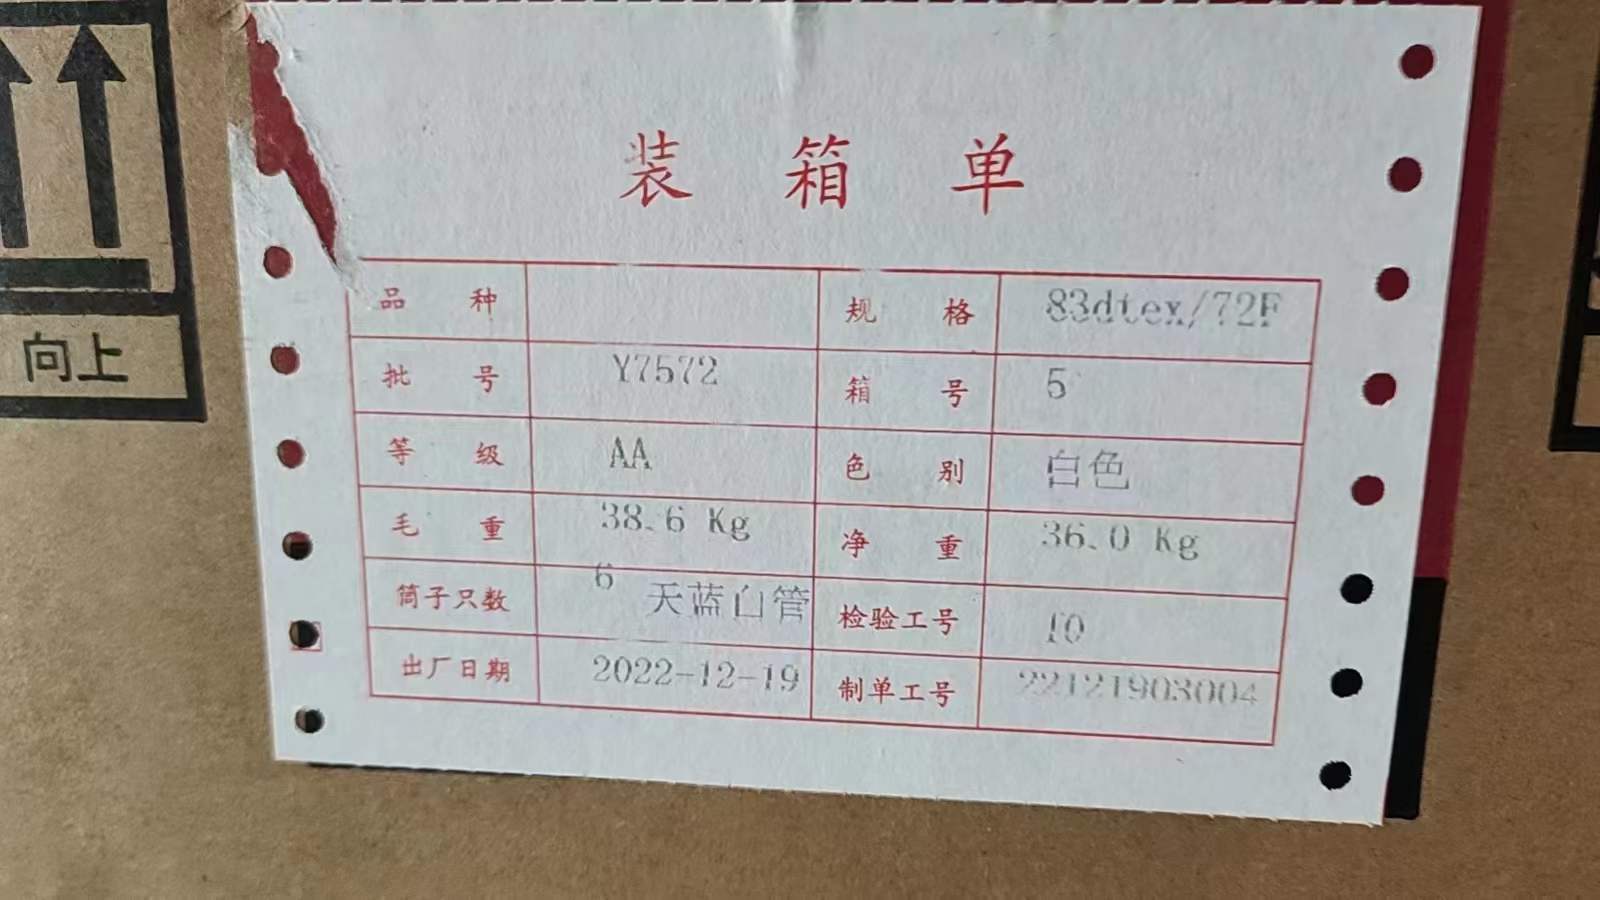 装箱单
品种 规格 83dtex/72F
批号 Y7572 箱号 5
等级 AA 色别 白色
毛重 38.6 Kg 净重 36.0 Kg
筒子只数 6 天蓝白管 检验工号 10
出厂日期 2022-12-19 制单工号 22121903004
向上